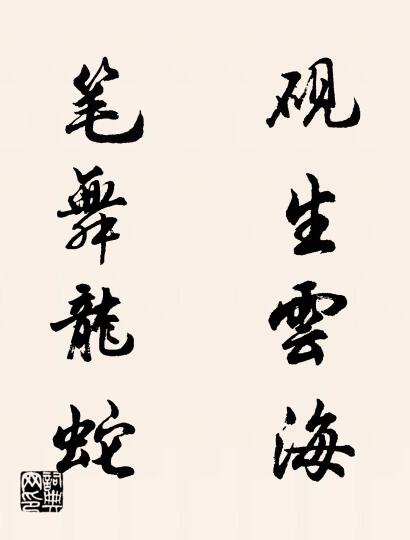 砚生雲海
笔舞龍蛇
詞典网印